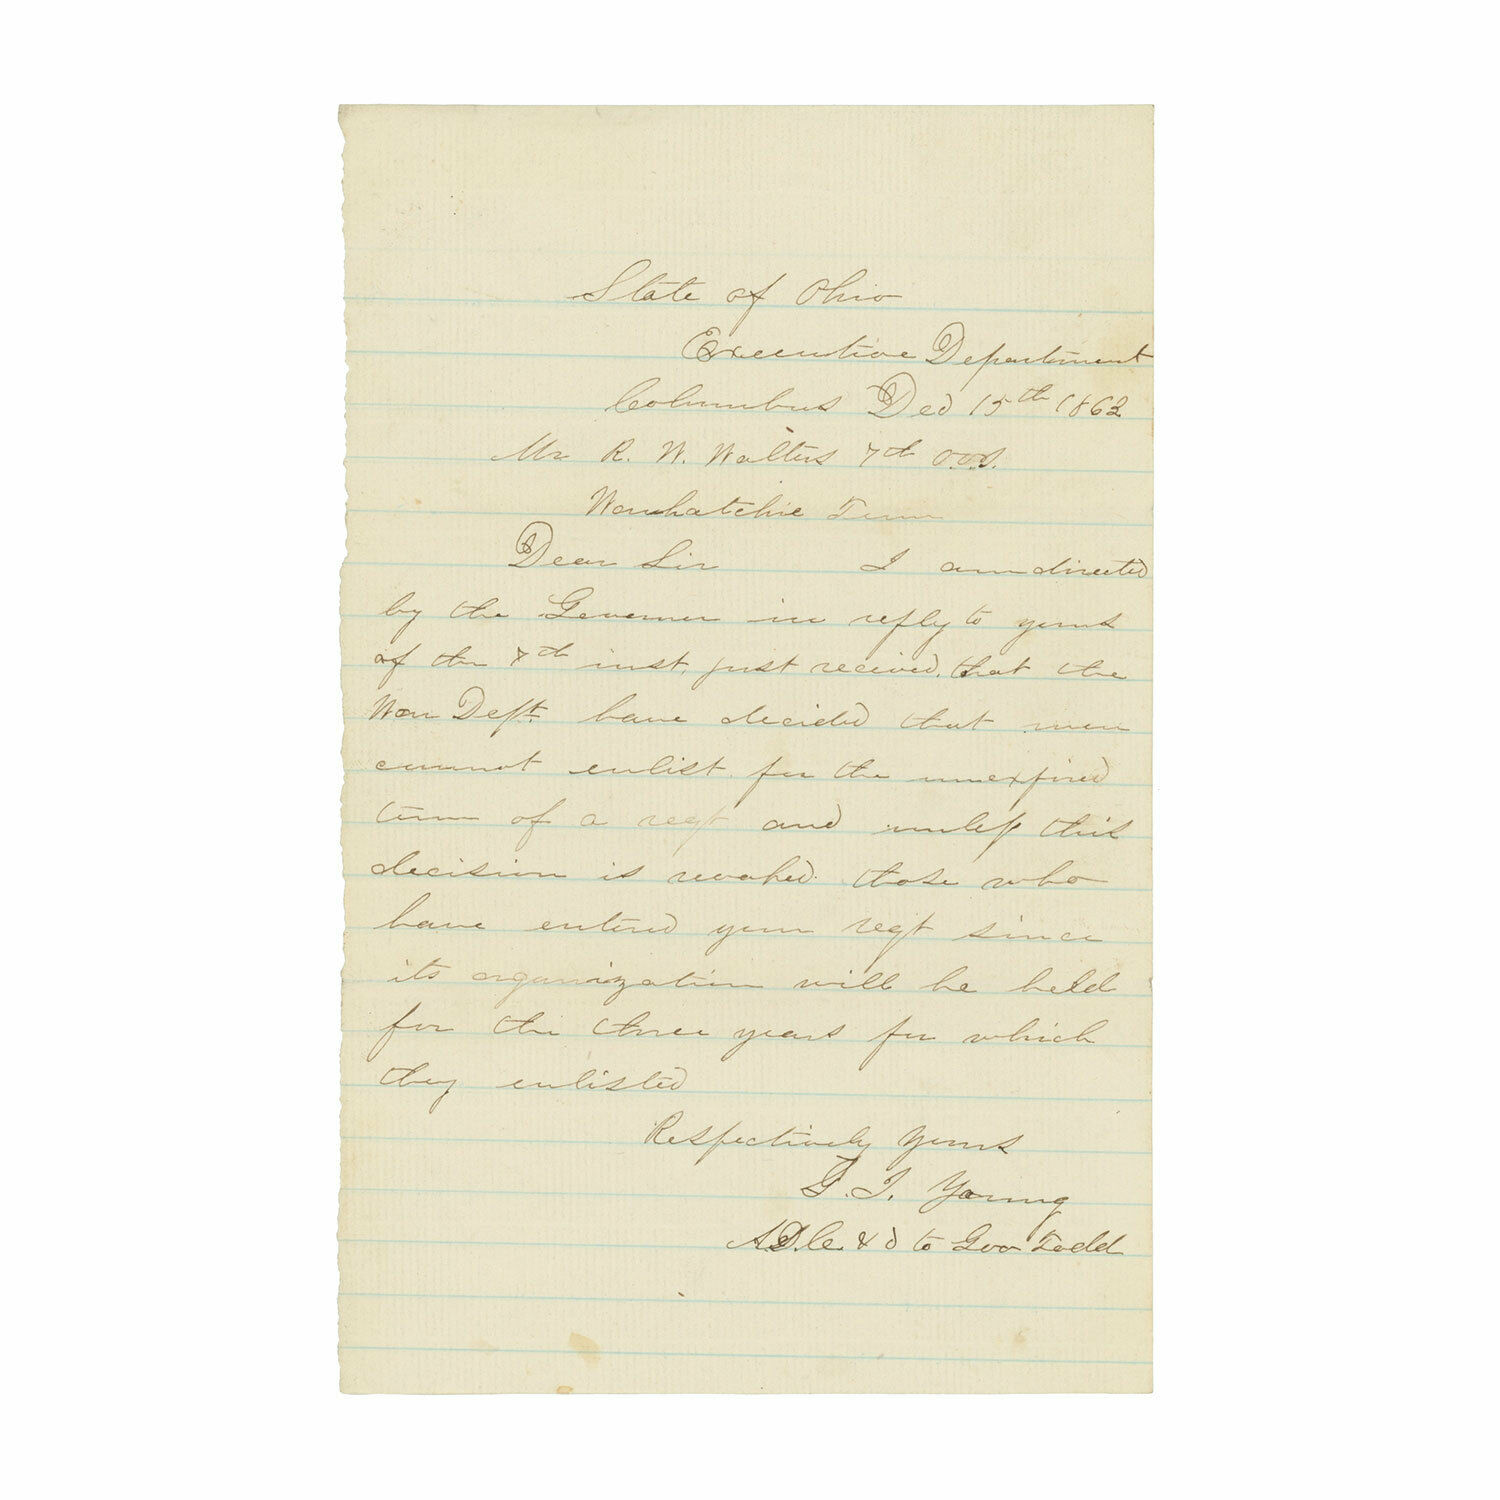 State of Ohio
Executive Department
Columbus Dec 15th 1863
Mr R. W. Walters 7th O.V.I.
Wauhatchie Tenn
Dear Sir I am directed
by the Governor in reply to yours
of the 7th inst, just recived, that the
War Dept have decided that men
cannot enlist for the unexpired
term of a regt and unless this
decision is revoked. those who
have entered your regt since
its organization will be held
for the three years for which
they enlisted
Respectively Yours
G. I. Young
A.D.C. & to Gov Todd